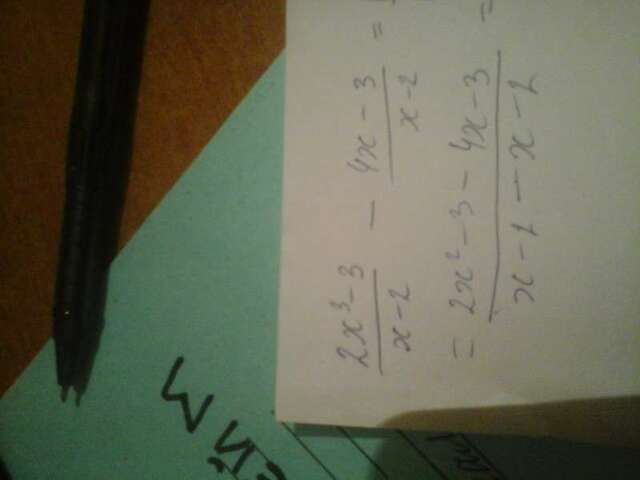 2x³-3/x-2 - 4x-3/x-2 =
= 2x²-3-4x-3/x-1-x-1 =